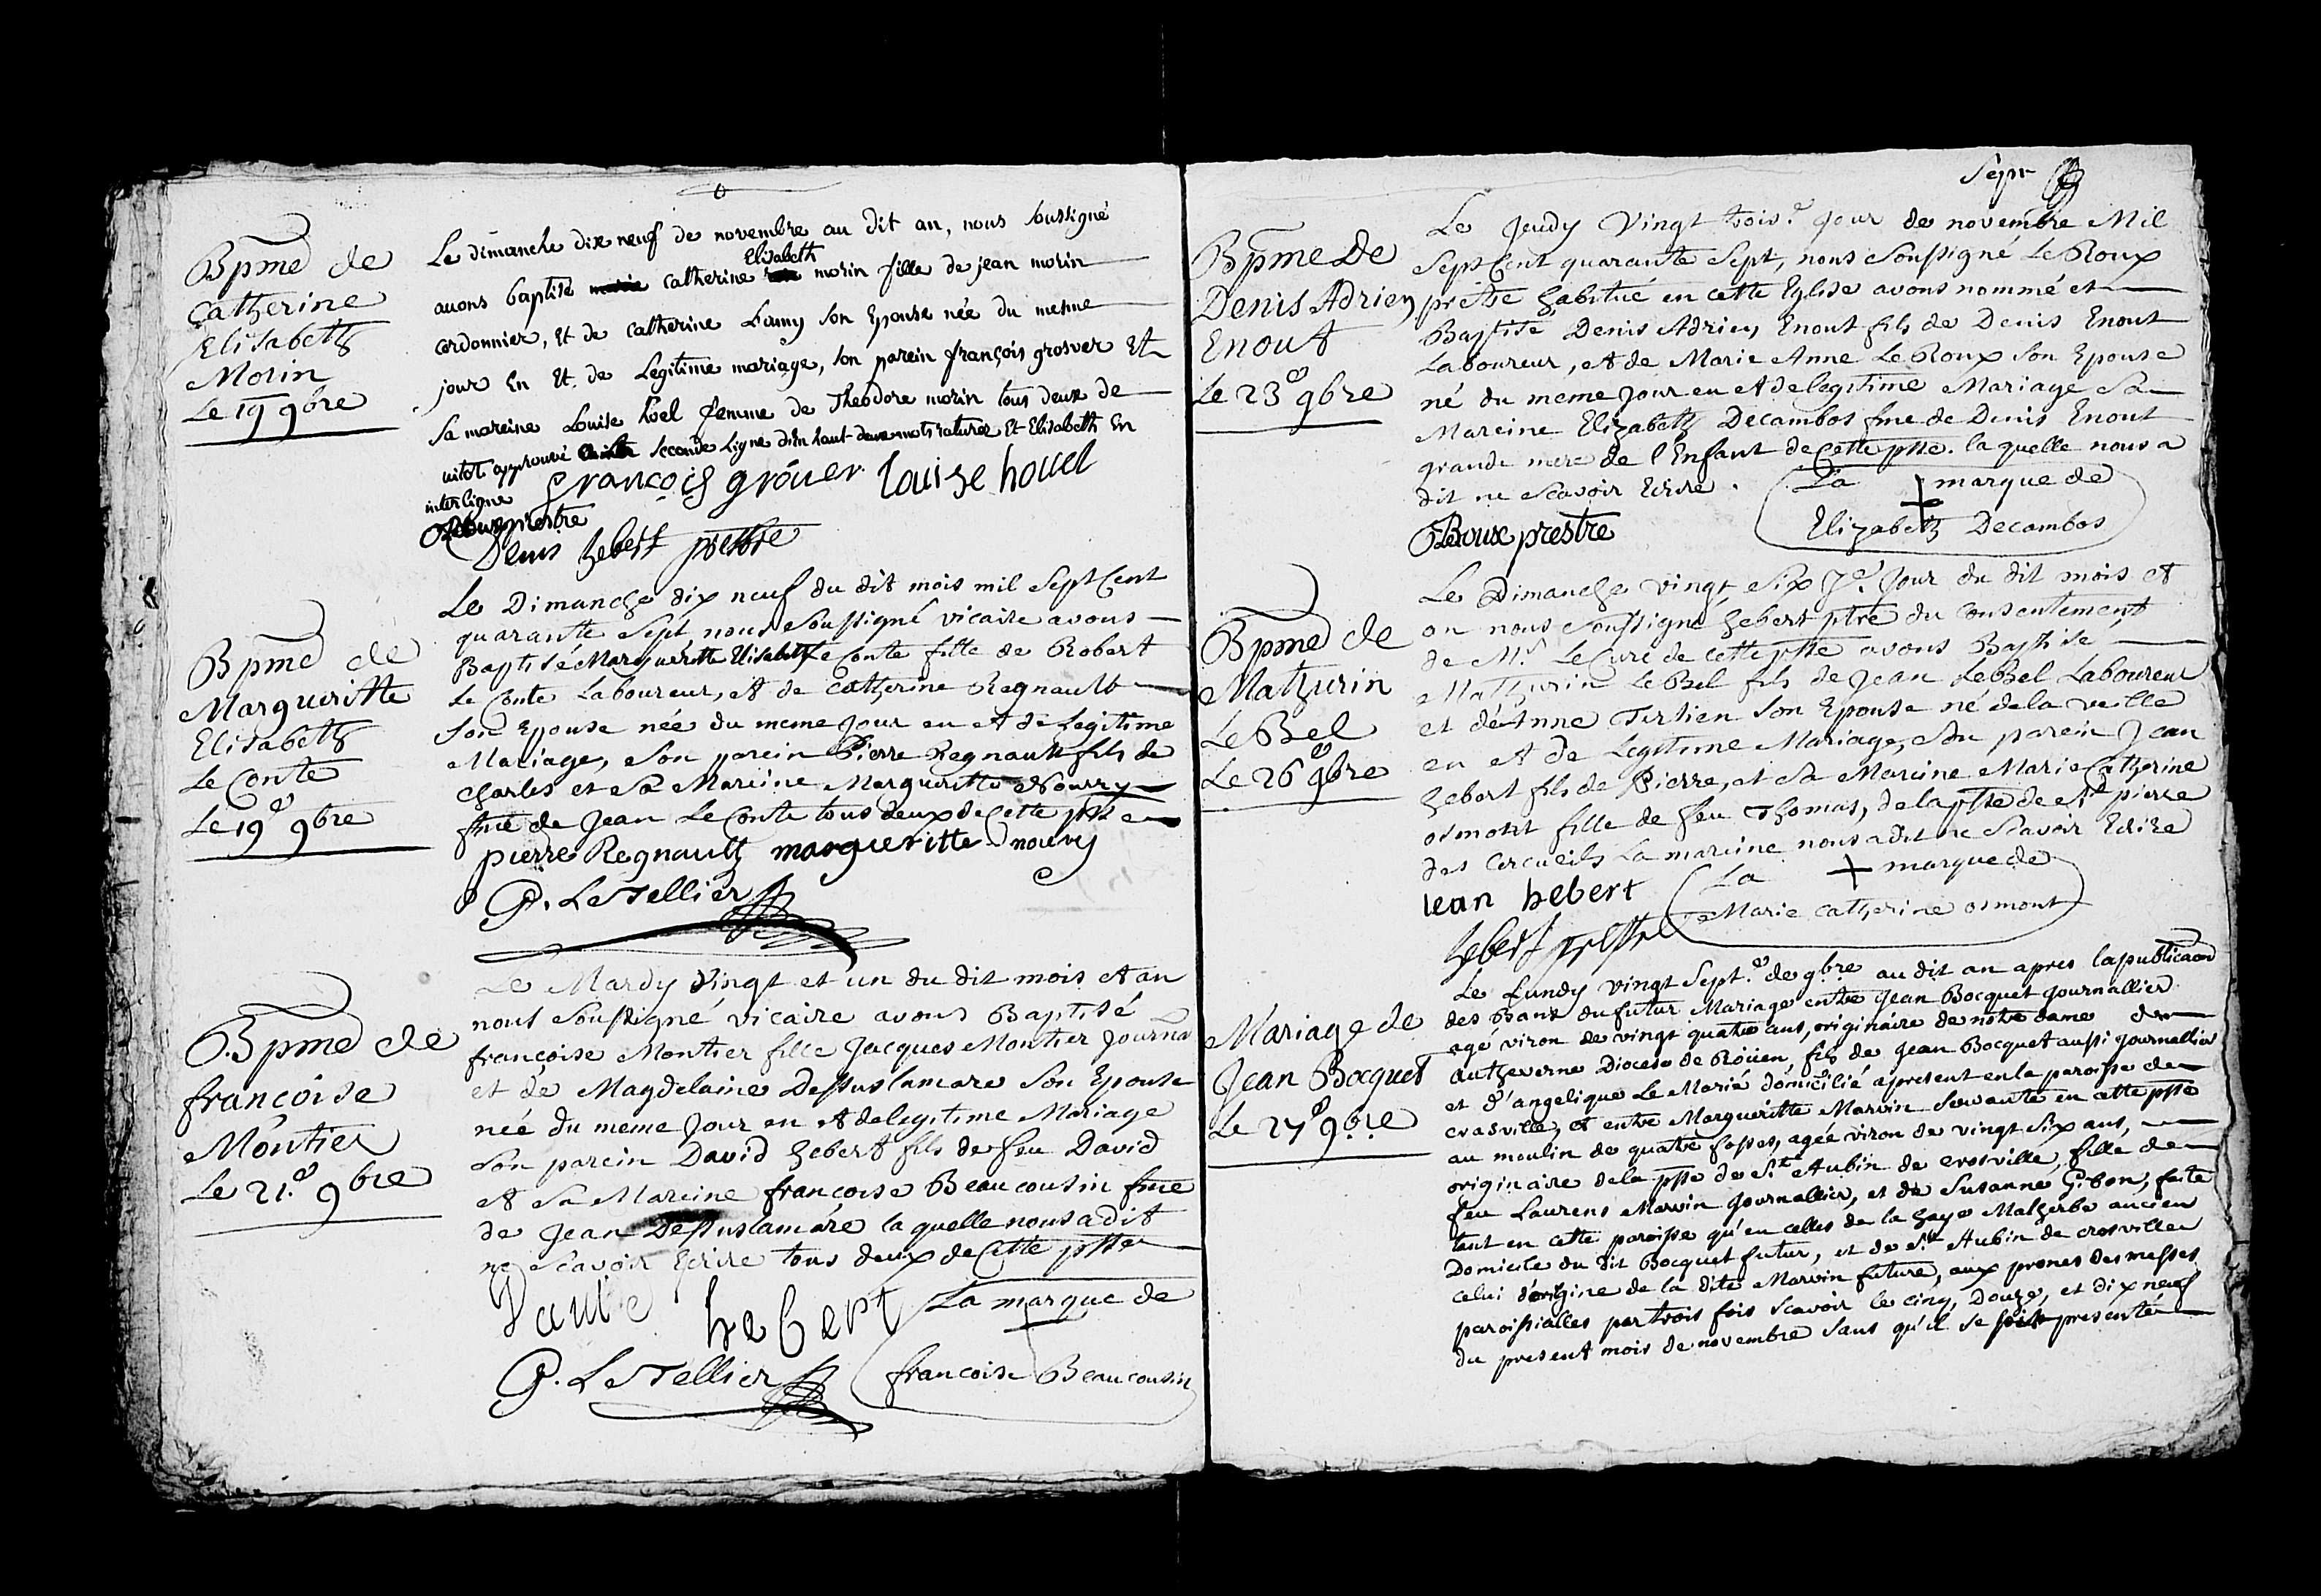 Bpme de
Catherine
Elisabeth
Morin
Le 19 9bre
Le dimanche dix neuf de novembre au dit an, nous soussigné
Elisabeth
avons baptisé catherine morin fille de jean morin
cordonnier, Et de catherine son Epouse née du mesme
jour En Et de Legitime mariage, son parein françois grosver Et
Sa mareine Louise hoel femme de Theodore morin tous deux de
approuvé seconde Ligne d'En haut deux mots raturez Et Elisabeth En
interligne
françois gröuer louise houel
Leroux prestre
Denis hebert prestre
Bpme de
Margueritte
Elisabeth
Le Conte
Le 19e 9bre
Le Dimanche dix neuf du dit mois mil Sept Cent
quarante Sept, nous Soussigné vicaire avons
Baptisé Margueritte Elisabeth Le Conte fille de Robert
Le Conte Laboureur, et de Catherine Regnault
Son Epouse née du meme Jour en et de Legitime
Mariage, Son parein Pierre Regnault fils de
Charles et Sa Mareine Margueritte Nourry
fme de Jean Le Conte tous deux de Cette psse
pierre Regnault margueritte noury
P. Le Tellier
Bpme de
françoise
Montier
Le 21.e 9bre
Le Mardy Vingt et un du dit mois et an
nous Soussigné vicaire avons Baptisé
françoise Montier fille Jacques Montier Journa
et de Magdelaine Dessuslamare Son Epouse
née du meme Jour en et de legitime Mariage
Son parein David hebert fils de feu David
et Sa Mareine françoise Beaucousin fme
de Jean Dessuslamare laquelle nous a dit
ne Scavoir Ecrire tous deux de Cette psse
hebert La marque de
francoise Beaucousin
P. Le Tellier
Sept
Bpme De
Denis Adrien
Enout
Le 23e 9bre
Le Jeudy Vingt trois.e Jour de novembre Mil
Sept Cent quarante Sept, nous Soussigné Le Roux
prêtre habitué en cette Eglise avons nommé et
Baptisé Denis Adrien Enout fils de Denis Enout
Laboureur, et de Marie Anne Le Roux Son Epouse
né du meme Jour en et de legitime Mariage Sa
Mareine Elizabeth Decambos fme de Denis Enout
grande mere de l'Enfant de Cette psse. la quelle nous a
dit ne Scavoir Ecrire.
La marque de
Elizabeth Decambos
Leroux prestre
Bpme de
Mathurin
Le Bel
Le 26e 9bre
Le Dimanche vingt Six Jour du dit mois et
an nous Soussigné hebert ptre du Consentement
de Mr. Le Curé de cette psse avons Baptisé
Mathurin Le Bel fils de Jean Le Bel Laboureur
et de Anne Tirtien Son Epouse né de la veille
en et de Legitime Mariage, Son parein Jean
hebert fils de Pierre, et Sa Mareine Marie Catherine
osmont fille de feu Thomas, de la psse de St pierre
des Cercueils La mareine nous a dit ne Scavoir Ecrire
La marque de
Marie catherine osmont
Iean hebert
hebert prestre
Mariage de
Jean Bocquet
Le 27e 9bre
Le Lundy vingt Sept.e de 9bre au dit an apres la publicaon
des Bans du futur Mariage entre Jean Bocquet Journallier
agé viron de vingt quatre ans, originaire de nostre dame de
autheverne Diocese de Roüen, fils de Jean Bocquet aussi Journallier
et d'angelique Le Marié domicilié apresent en la paroisse de
crasville, et entre Margueritte Marvin Servante en cette psse
au moulin de quatre fosses, agée viron de vingt Six ans,
originaire de la psse de St Aubin de crosville, fille de
feu Laurens Marvin Journallier, et de Susanne Gibon, faite
tant en cette paroisse qu'en celles de la haye Malherbe ancien
Domicile du Dit Bocquet futur, et de St Aubin de crosville
celui d'origine de la dite Marvin future, aux prones des messes
paroissialles par trois fois Scavoir le cinq, Douze, et dix neuf
du present mois de novembre Sans qu'il Se Soit presenté